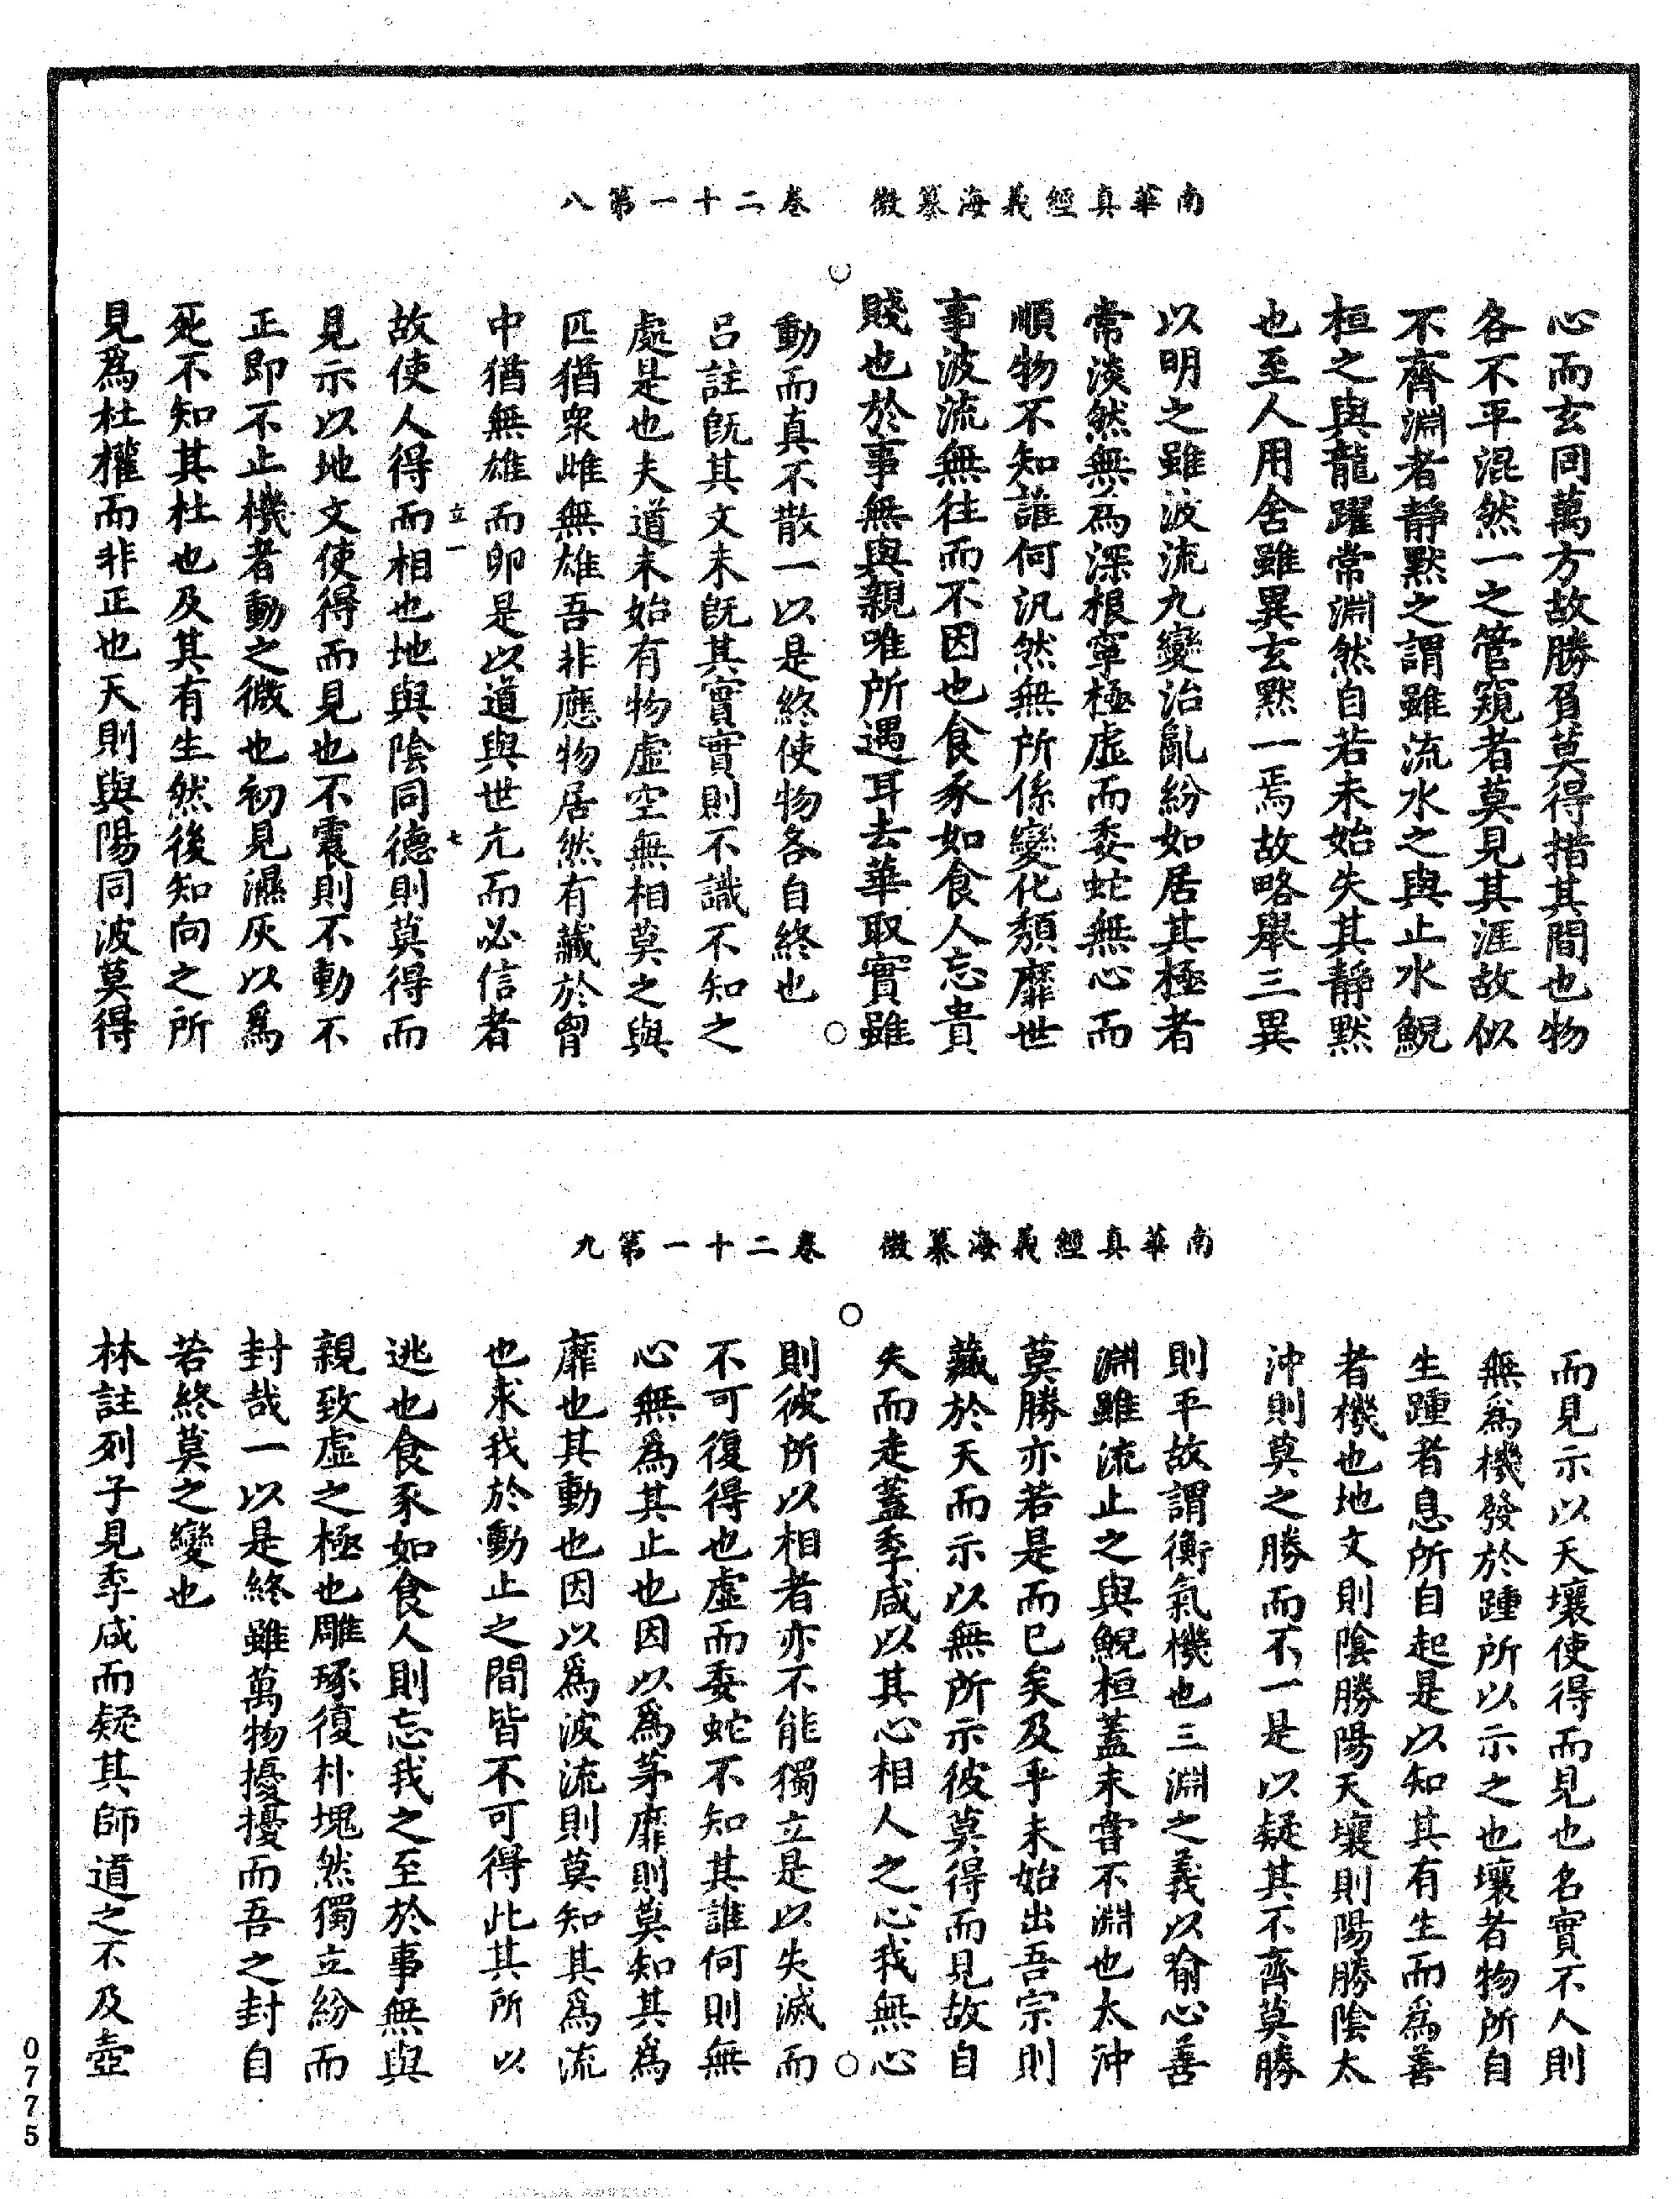 南華真經義海纂微　卷二十一第八
心而玄同萬方故勝負莫得措其間也物
各不平混然一之管窺者莫見其涯故似
不齊淵者靜默之謂雖流水之與止水鯢
桓之與龍躍常淵然自若未始失其靜默
也至人用舍雖異玄默一焉故略舉三異
以明之雖波流九變治亂紛如居其極者
常淡然無為深根寧極虛而委蛇無心而
順物不知誰何汎然無所係變化頹靡世
事波流無往而不因也食豕如食人忘貴
賤也於事無與親唯所遇耳去華取實雖
動而真不散一以是終使物各自終也
呂註旣其文未旣其實實則不識不知之
處是也夫道未始有物虛空無相莫之與
匹猶衆雌無雄吾非應物居然有藏於胷
中猶無雄而卵是以道與世亢而必信者
立一　七
故使人得而相也地與陰同德則莫得而
見示以地文使得而見也不震則不動不
正即不止機者動之微也初見濕灰以爲
死不知其杜也及其有生然後知向之所
見爲杜權而非正也天則與陽同波莫得
南華真經義海纂微　卷二十一第九
而見示以天壤使得而見也名實不人則
無爲機發於踵所以示之也壤者物所自
生踵者息所自起是以知其有生而為善
者機也地文則陰勝陽天壤則陽勝陰太
沖則莫之勝而不一是以疑其不齊莫勝
則平故謂衡氣機也三淵之義以喻心善
淵雖流止之與鯢桓蓋未嘗不淵也太沖
莫勝亦若是而已矣及乎未始出吾宗則
藏於天而示以無所示彼莫得而見故自
失而走蓋季咸以其心相人之心我無心
則彼所以相者亦不能獨立是以失滅而
不可復得也虛而委蛇不知其誰何則無
心無爲其止也因以爲茅靡則莫知其爲
靡也其動也因以爲波流則莫知其爲流
也求我於動止之間皆不可得此其所以
逃也食豕如食人則忘我之至於事無與
親致虛之極也雕琢復朴塊然獨立紛而
封哉一以是終雖萬物擾擾而吾之封自
若終莫之變也
林註列子見季咸而疑其師道之不及壺
0775